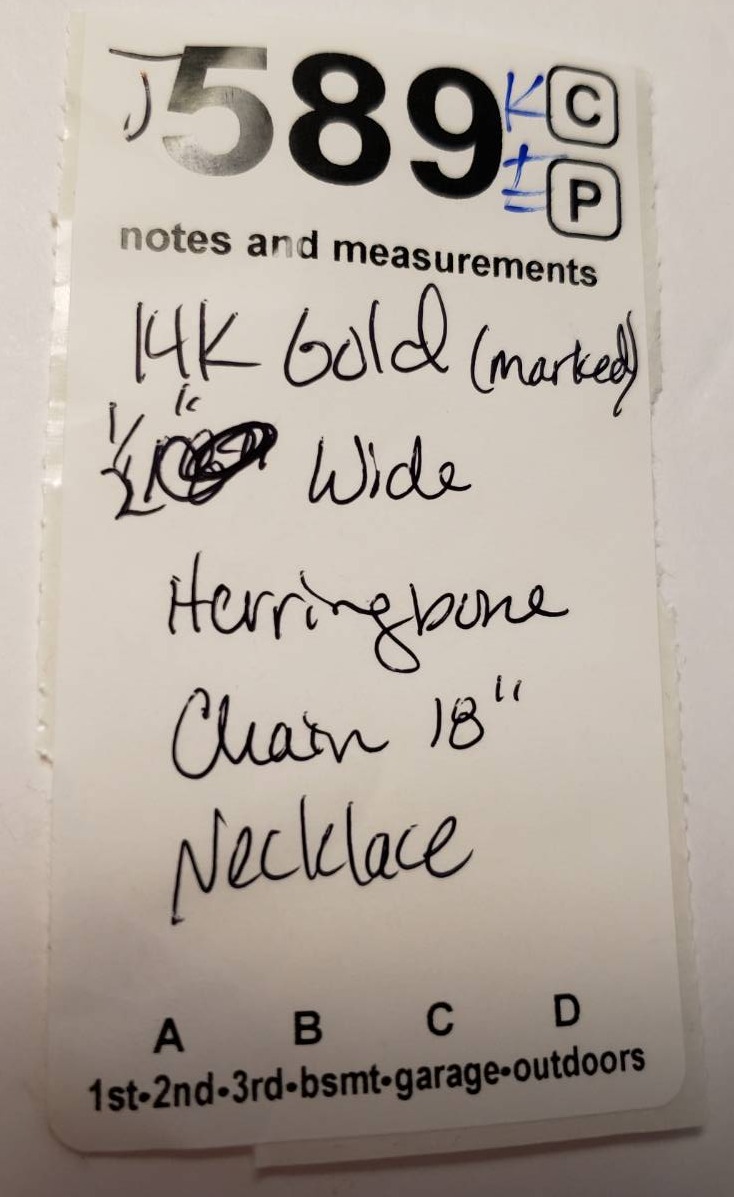 J589 K C
± P
notes and measurements
14K Gold (marked)
1/2" Wide
Herringbone
Chain 18"
Necklace
A B C D
1st•2nd•3rd•bsmt•garage•outdoors